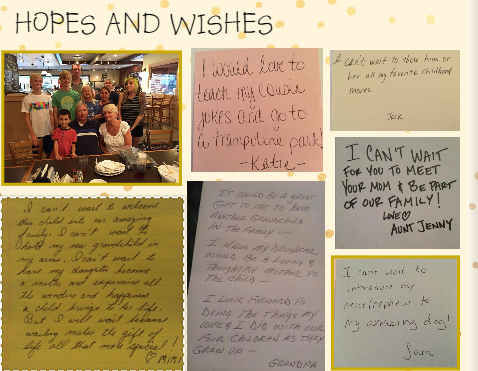 HOPES AND WISHES
I would love to
teach my cousin
jokes and go to
a trampoline park!
- Katie -
I can't wait to show him or
her all my favorite childhood
movies.
Jack
I CAN'T WAIT
FOR YOU TO MEET
YOUR MOM & BE PART
OF OUR FAMILY!
LOVE
AUNT JENNY
I can't wait to welcome
this child into our amazing
family. I can't wait to
hold my new grandchild in
my arms. I can't wait to
have my daughter become
a mother and experience all
the wonders and happiness
a child brings to her life.
But I will wait because
waiting makes the gift of
life all that more special!
♡ MIMI
IT WOULD BE A GREAT
GIFT TO ME TO HAVE
ANOTHER GRANDCHILD
IN THE FAMILY —
I KNOW MY DAUGHTER
WOULD BE A LOVING &
THOUGHTFUL MOTHER TO
THE CHILD —
I LOOK FORWARD TO
DOING THE THINGS MY
WIFE & I DID WITH OUR
FOUR CHILDREN AS THEY
GREW UP —
GRANDPA
I can't wait to
introduce my
niece/nephew to
my amazing dog!